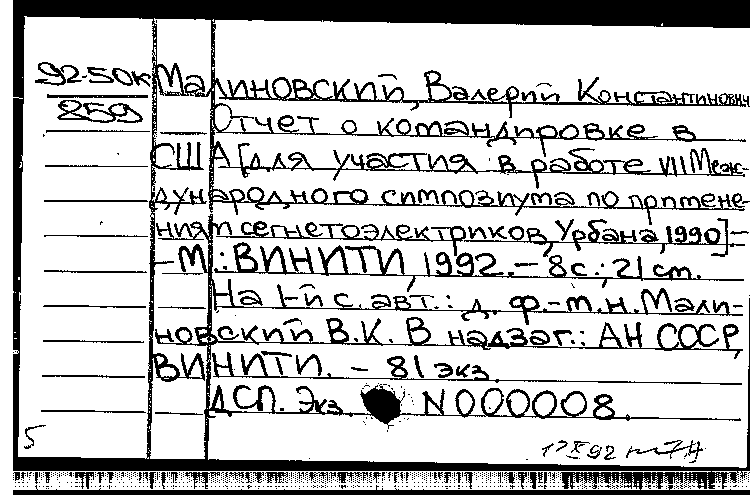 92-50к Малиновский, Валерий Константинович
259 Отчет о командировке в
США [для участия в работе VII Меж-
дународного симпозиума по примене-
ниям сегнетоэлектриков, Урбана, 1990] -
- М.: ВИНИТИ, 1992. - 8 с.; 21 см.
На 1-й с. авт.: д. ф.-м.н. Мали-
новский В.К. В надзаг.: АН СССР,
ВИНИТИ. - 81 экз.
ДСП. Экз. N 000008.
5 17 X 92